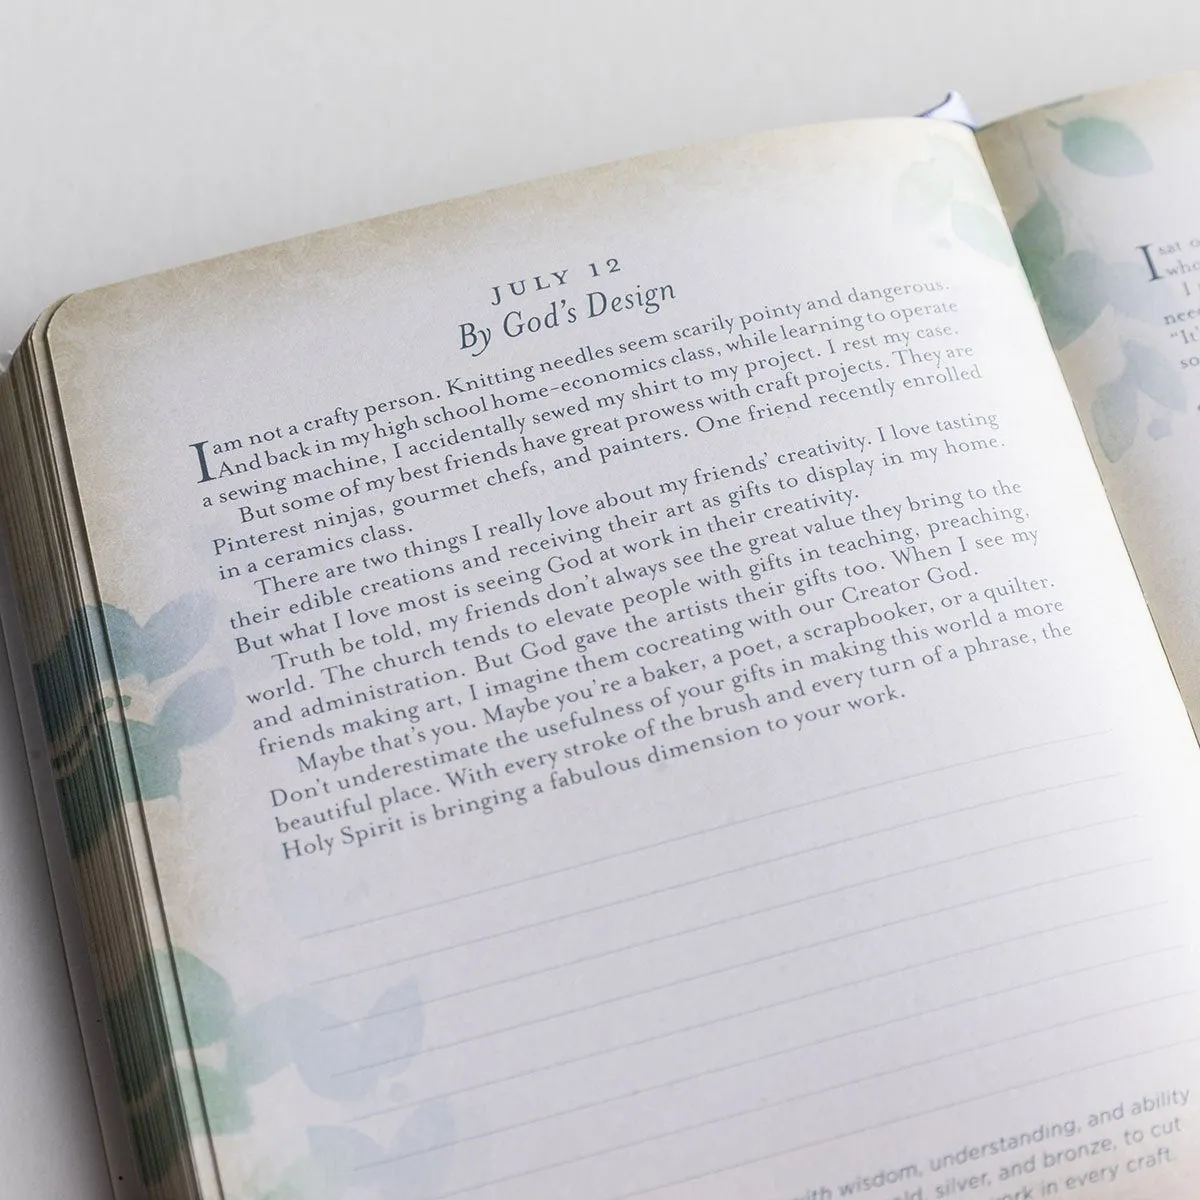 JULY 12
By God's Design
I am not a crafty person. Knitting needles seem scarily pointy and dangerous.
And back in my high school home-economics class, while learning to operate
a sewing machine, I accidentally sewed my shirt to my project. I rest my case.
But some of my best friends have great prowess with craft projects. They are
Pinterest ninjas, gourmet chefs, and painters. One friend recently enrolled
in a ceramics class.
There are two things I really love about my friends' creativity. I love tasting
their edible creations and receiving their art as gifts to display in my home.
But what I love most is seeing God at work in their creativity.
Truth be told, my friends don't always see the great value they bring to the
world. The church tends to elevate people with gifts in teaching, preaching,
and administration. But God gave the artists their gifts too. When I see my
friends making art, I imagine them cocreating with our Creator God.
Maybe that's you. Maybe you're a baker, a poet, a scrapbooker, or a quilter.
Don't underestimate the usefulness of your gifts in making this world a more
beautiful place. With every stroke of the brush and every turn of a phrase, the
Holy Spirit is bringing a fabulous dimension to your work.
with wisdom, understanding, and ability
silver, and bronze, to cut
in every craft.
I sat
who
I
"It
so